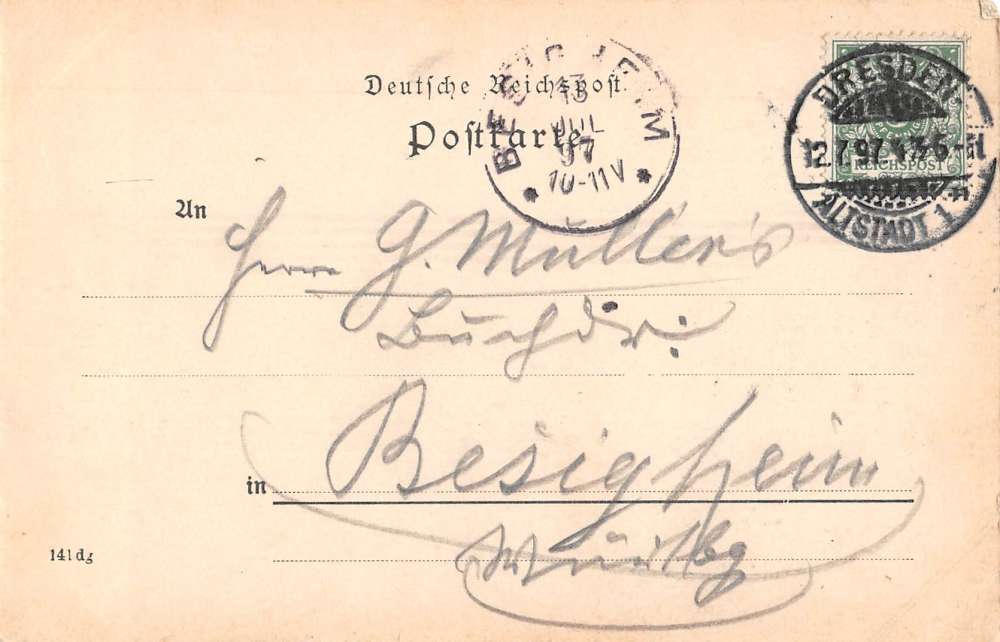 Deutsche Reichspost
Postkarte
BESIGHEIM
13
JUL
97
10-11V
DRESDEN
12.7.97.
5-
ALTSTADT 1
REICHSPOST
An
Herrn G. Müller's
Buchdr:
in Besigheim
Württbg
141dg